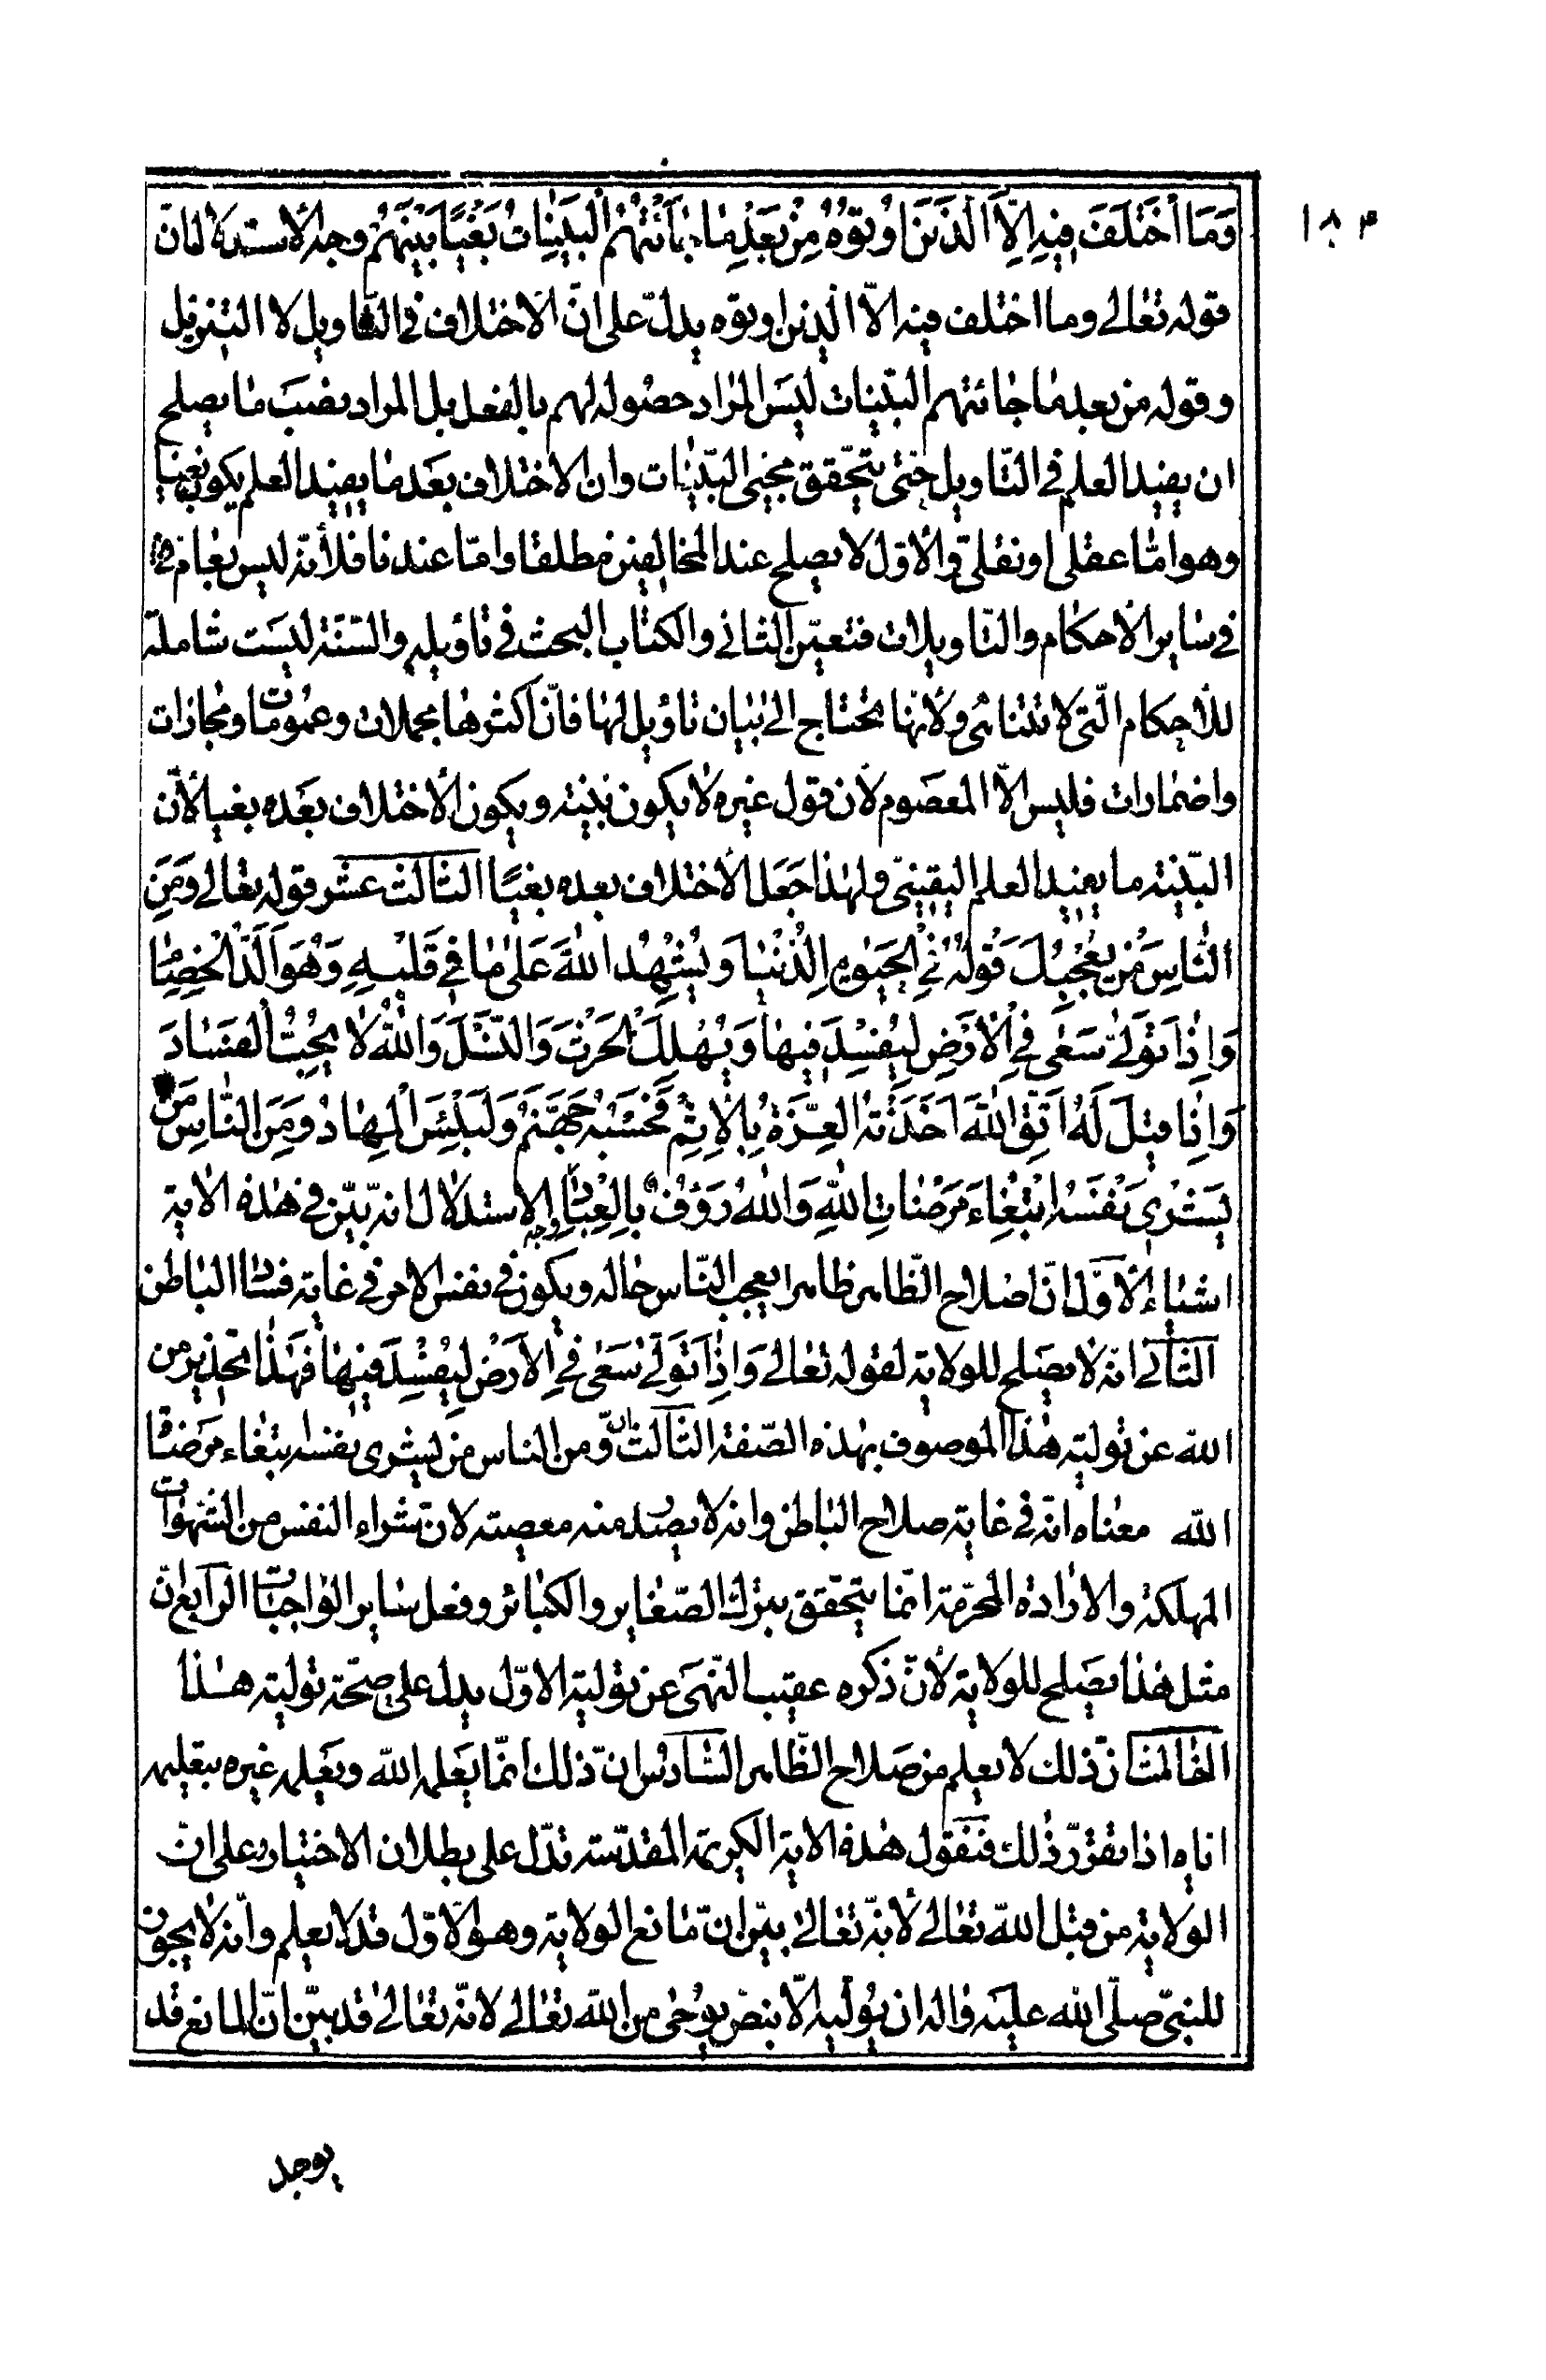 ١٨٤
وَمَا اخْتَلَفَ فِيهِ اِلَّا الَّذِينَ اُوتُوهُ مِنْ بَعْدِ مَا جَاءَتْهُمُ الْبَيِّنَاتُ بَغْيًا بَيْنَهُمْ وجه الاستدلال ان
قوله تعالى وما اختلف فيه الّا الذين اوتوه يدلّ على انّ الاختلاف فى التاويل لا التنزيل
وقوله من بعد ما جائتهم البيّنات ليس المراد حصوله لهم بالفعل بل المراد نصب ما يصلح
ان يفيد العلم فى التّاويل حتى يتحّقق مجيئ البيّنات وان الاختلاف بعد ما يفيد العلم يكون بغيا
وهو امّا عقلى او نقلى والاوّل لا يصلح عند المخالفين مطلقا وامّا عندنا فلأنّه ليس بعام
فى ساير الأحكام والتاويلات فتعيّن الثانى والكتاب البحث فى تاويله والسّنة ليست شاملة
للأحكام الّتى لا تتناهى ولأنها تحتاج الى بيان تاويل لها فانّ اكثرها مجملات وعمومات ومجازات
واضمارات فليس الّا المعصوم لأن قول غيره لا يكون بينة ويكون الاختلاف بعده بغيا لأنّ
البيّنة ما يفيد العلم اليقينىّ ولهذا جعل الاختلاف بعده بغيًا الثالث عشر قوله تعالى وَمِنَ
النَّاسِ مَنْ يُعْجِبُكَ قَوْلُهُ فِى الْحَيٰوةِ الدُّنْيَا وَيُشْهِدُ اللهَ عَلٰى مَا فِى قَلْبِهِ وَهُوَ اَلَدُّ الْخِصَامِ
وَاِذَا تَوَلّٰى سَعٰى فِى الْاَرْضِ لِيُفْسِدَ فِيهَا وَيُهْلِكَ الْحَرْثَ وَالنَّسْلَ وَاللهُ لَا يُحِبُّ الْفَسَادَ
وَاِذَا قِيلَ لَهُ اتَّقِ اللهَ اَخَذَتْهُ الْعِزَّةُ بِالْاِثْمِ فَحَسْبُهُ جَهَنَّمُ وَلَبِئْسَ الْمِهَادُ وَمِنَ النَّاسِ مَنْ
يَشْرِى نَفْسَهُ ابْتِغَاءَ مَرْضَاتِ اللهِ وَاللهُ رَؤُفٌ بِالْعِبَادِ وجه الاستدلال انه بيّن فى هذه الاية
اشياء الأوّل انّ اصلاح الظّاهر ظاهرا يعجب النّاس حاله ويكون فى نفس الامر فى غاية فساد الباطن
الثانى انّه لا يصلح للولاية لقوله تعالى وَاِذَا تَوَلّٰى سَعٰى فِى الْاَرْضِ لِيُفْسِدَ فِيهَا فهذا تحذير من
الله عن تولية هذا الموصوف بهذه الصّفة الثالث ان ومن الناس من يشرى نفسه ابتغاء مرضات
الله معناه انّه فى غاية صلاح الباطن وانه لا يصدر منه معصية لانّ شراء النفس من الشهوات
المهلكة والارادة المحرّمة انّما يتحّقق بترك الصّغاير والكبائر وفعل ساير الواجبات الرابع ان
مثل هذا يصلح للولاية لأنّ ذكره عقيب النّهى عن تولية الاوّل يدل على صحّة تولية هذا
الخامس انّ ذلك لا يعلم من صلاح الظّاهر السّادس انّ ذلك انّما يعلمه الله ويعلمه غيره بتعليمه
اياه اذا تقرّر ذلك فنقول هذه الاية الكريمة المقدّسة تدّل على بطلان الاختيار وعلى انّ
الولاية من قبل الله تعالى لأنّه تعالى بيّن انّ مانع الولاية وهو الاوّل قد لا يعلم وانّه لا يجوز
للنبىّ صلّى الله عليه واله ان يولّيه الّا بنصّ يوحى من الله تعالى لانّه تعالى قد بيّن انّ المانع قد
يوجد